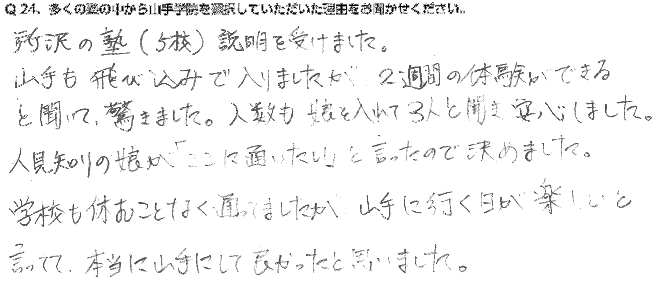 Q24、多くの塾の中から山手学院を選択していただいた理由をお聞かせください。
所沢の塾(5校)説明を受けました。
山手も飛び込みで入りましたが、2週間の体験ができる
と聞いて、驚きました。人数も娘を入れて3人と聞き安心しました。
人見知りの娘が「ここに通いたい」と言ったので決めました。
学校も休むことなく通ってましたが、山手に行く日が楽しいと
言ってて、本当に山手にして良かったと思いました。